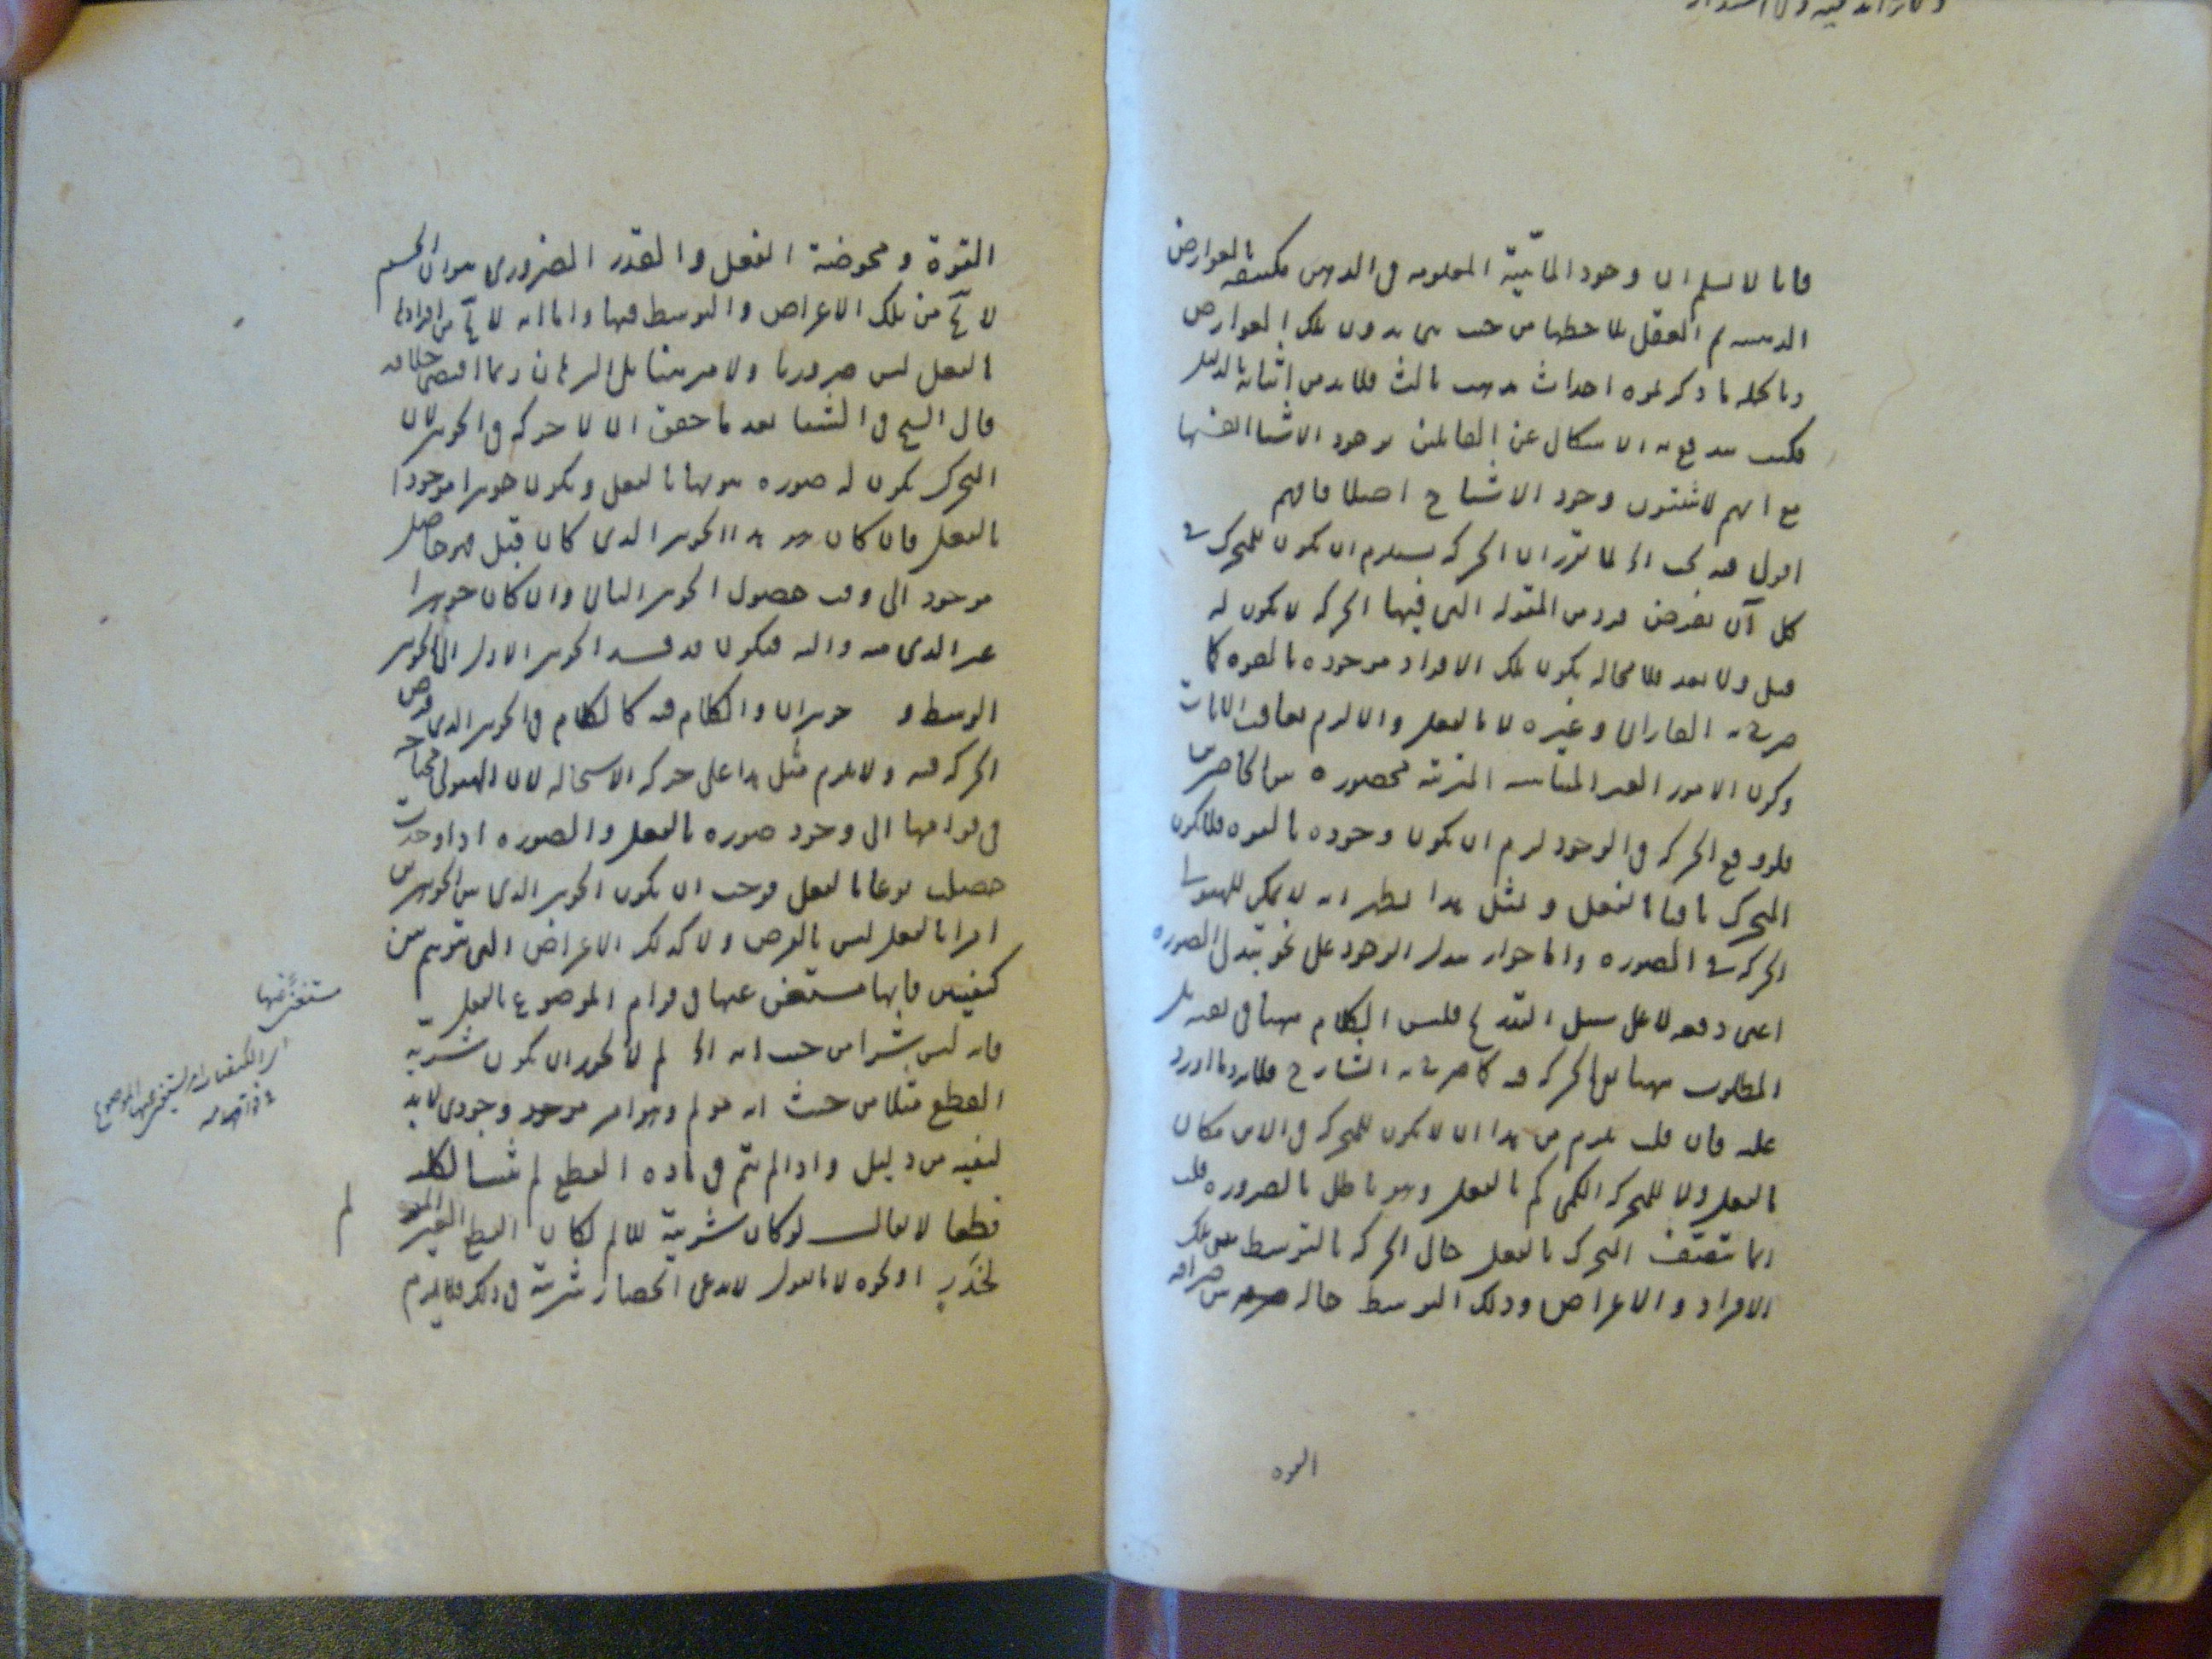 فانا لا نسلم ان وجود الماهية المعلومة في الذهن مكتنفة بالعوارض
الذهنية ثم العقل يلاحظها من حيث هي بدون تلك العوارض
وبالجملة ما ذكرتموه احداث مذهب ثالث فلا بد من اثباته بالدليل
فكيف يندفع به الاشكال عن القائلين بوجود الاشياء انفسها
مع انهم لا يثبتون وجود الاشباح اصلا فافهم
اقول فيه بحث اذ لما تقرر ان الحركة يستلزم ان يكون للمتحرك في
كل آن يفرض فرد من المقولة التي فيها الحركة لا يكون له
قبل ولا بعد فلا محالة يكون تلك الافراد موجودة بالقوة كما
صرح به الفارابي وغيره لا بالفعل والا لزم تعاقب الآنات
وكون الامور الغير المتناهية المترتبة محصورة بين الحاصرين
فلو وقع الحركة في الوجود لزم ان يكون وجوده بالقوة فلا يكون
المتحرك باقيا بالفعل وبمثل هذا يظهر انه لا يمكن للهيولى
الحركة في الصورة واما جواز تبدل الوجود على نحو تبدل الصورة
اعني دفعة لا على سبيل التدريج فليس الكلام ههنا في نفيه بل
المطلوب ههنا نفي الحركة فيه كما صرح به الشارح فلا يرد ما اورد
عليه فان قلت يلزم من هذا ان لا يكون للمتحرك في الاين مكان
بالفعل ولا للمتحرك الكمي كم بالفعل وهو باطل بالضرورة قلت
انما يتصف المتحرك بالفعل حال الحركة بالتوسط بين تلك
الافراد والاعراض وذلك التوسط حالة بين صرافة
القوة
القوة ومحوضة الفعل والقدر الضروري هو ان الجسم
لا يخ من تلك الاعراض والتوسط فيها واما انه لا يخ من افرادها
بالفعل ليس ضروريا ولا مبرهنا بل البرهان ربما اقتضى خلافه
قال الشيخ في الشفا بعد ما حقق ان لا حركة في الجوهر لان
المتحرك يكون له صورة هو بها بالفعل ويكون جوهرا موجودا
بالفعل فان كان هو هذا الجوهر الذي كان قبل فهو حاصل
موجود الى وقت حصول الجوهر الثاني وان كان جوهرا
غير الذي منه واليه فيكون قد فسد الجوهر الاول الى الجوهر
الوسط و جوهران والكلام فيه كالكلام في الجوهر الذي فرض
الحركة فيه ولا يلزم مثل هذا على حركة الاستحالة لان الهيولى محتاجة
في قوامها الى وجود صورة بالفعل والصورة اذا وجدت
حصلت نوعا بالفعل فوجب ان يكون الجوهر الذي بين الجوهرين
امرا بالفعل ليس بالفرض ولا كذلك الاعراض التي يتوهم بين
كيفيتين فانها مستغنى عنها في قوام الموضوع بالفعل
فانه ليس شرا من حيث انه لم لا يجوز ان يكون شرية
القطع مثلا من حيث انه مولم وهو امر موجود وجودي لا بد
لنفيه من دليل واذا لم يتم في مادة القطع لم يثبت الكلية
قطعا لا يقال لو كان شرية للالم لكان القطع الغير المولم
لخدر او نحوه لا نا نقول لا ندعي انحصار شرية في ذلك فلا يلزم
لم
مستغنى عنها